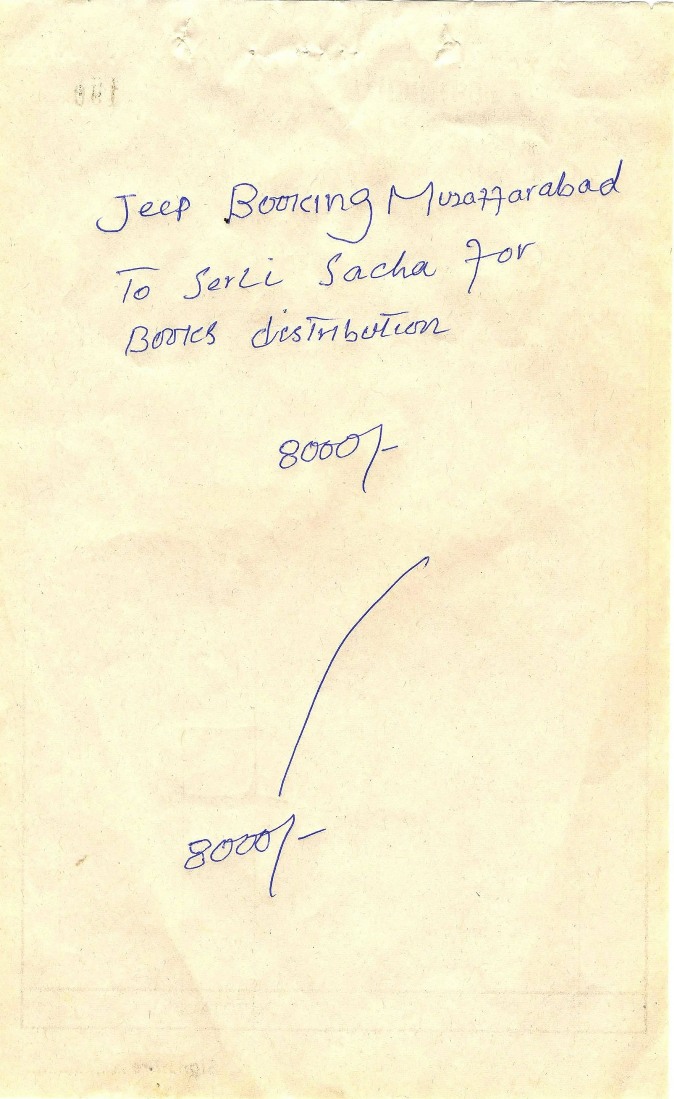 Jeep Booking Muzaffarabad
To Serli Sacha for
Books distribution
8000/-
8000/-